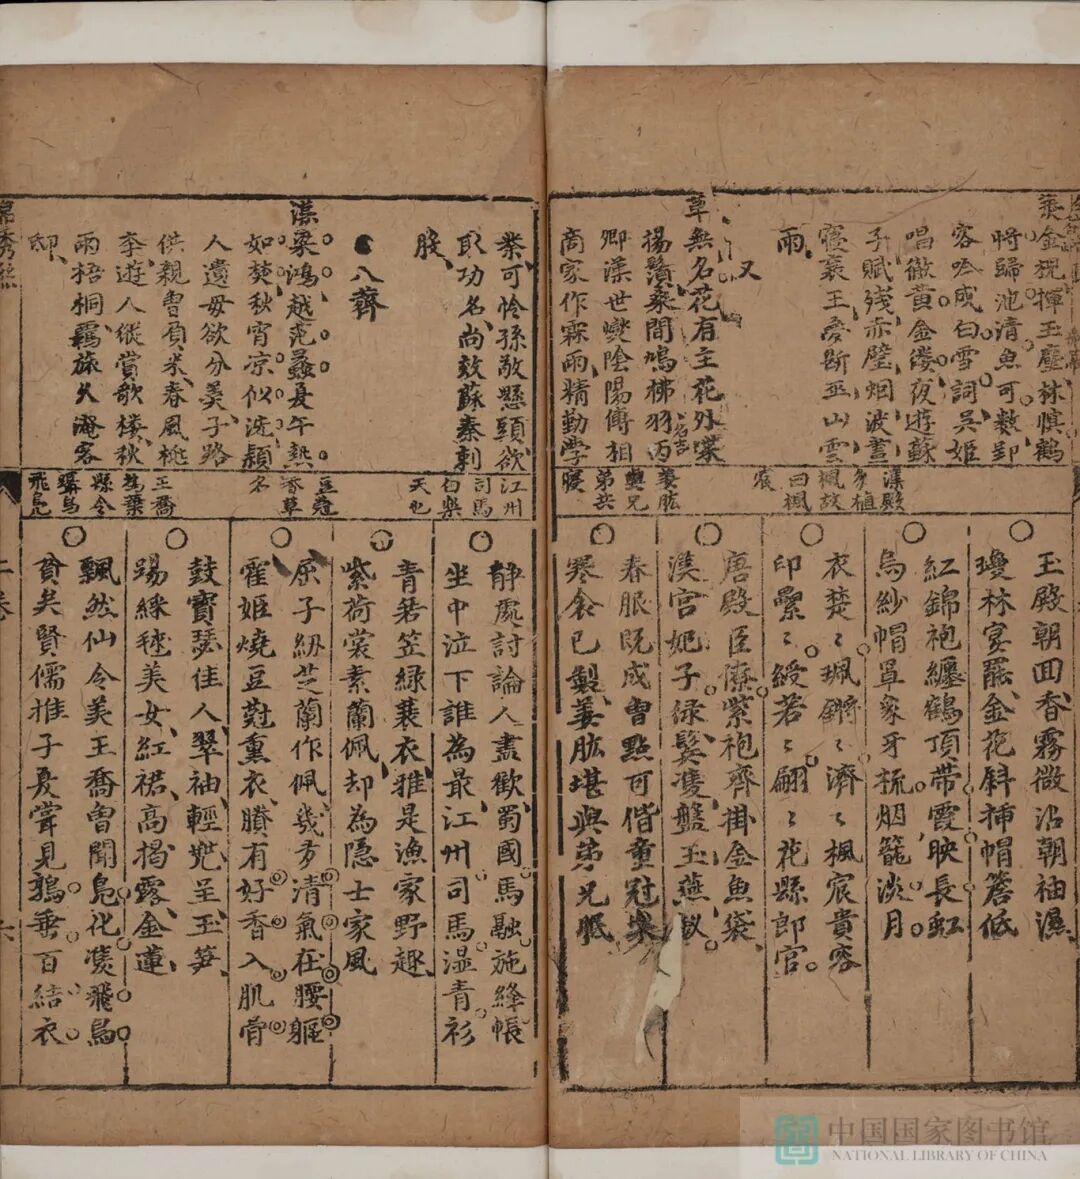 葉金猊揮玉麈林慎鶴
將歸池清魚可數對
客吟成白雪詞吳姬
唱徹黃金縷夜遊蘇
子賦殘赤壁烟波晝
寢襄王憂斷巫山雲
雨
又
草無名花有主花外蝶
揚鬚桑間鳩拂羽丙名吉
卿漢世燮陰陽傅相
商家作霖雨精勤學
漢殿
多植
楓故
曰楓
宸
姜肱
與兄
弟共
寢
玉殿朝回香霧微沾朝袖濕
瓊林宴罷金花斜插帽簷低
紅錦袍纏鶴頂帶霞映長虹
烏紗帽罩象牙梳烟籠淡月
衣楚〻珮鏘〻濟〻楓宸貴客
印纍〻綬若〻翩〻花縣郎官
唐殿臣僚紫袍齊掛金魚袋
漢宮妃子綠鬢雙盤玉燕釵
春服既成曾點可偕童冠樂
寒衾已製姜肱堪與弟兄眠
業可怜孫敬懸頭欲
取功名尚效蘇秦刺
股
八薺
漢梁鴻越范蠡夏午熱
如焚秋宵凉似洗潁
人遺母欲分羮子路
供親曾負米春風桃
李遊人縱賞歌樓秋
雨梧桐羈旅久淹客
邸
江州
司馬
白樂
天也
豆蔻
香草
名
王喬
為葉
縣令
飛舄
靜處討論人盡歡蜀國馬融施絳帳
坐中泣下誰為最江州司馬濕青衫
青箬笠綠蓑衣雅是漁家野趣
紫荷裳素蘭佩却為隱士家風
屈子紉芝蘭作佩幾多清氣在腰軀
霍姬燒豆蔻熏衣賸有好香入肌骨
鼓寶瑟佳人翠袖輕兜呈玉笋
踢綵毬美女紅裙高揭露金蓮
飄然仙令美王喬曾聞舄化凌飛舄
貧矣賢儒推子夏嘗見鶉垂百結衣